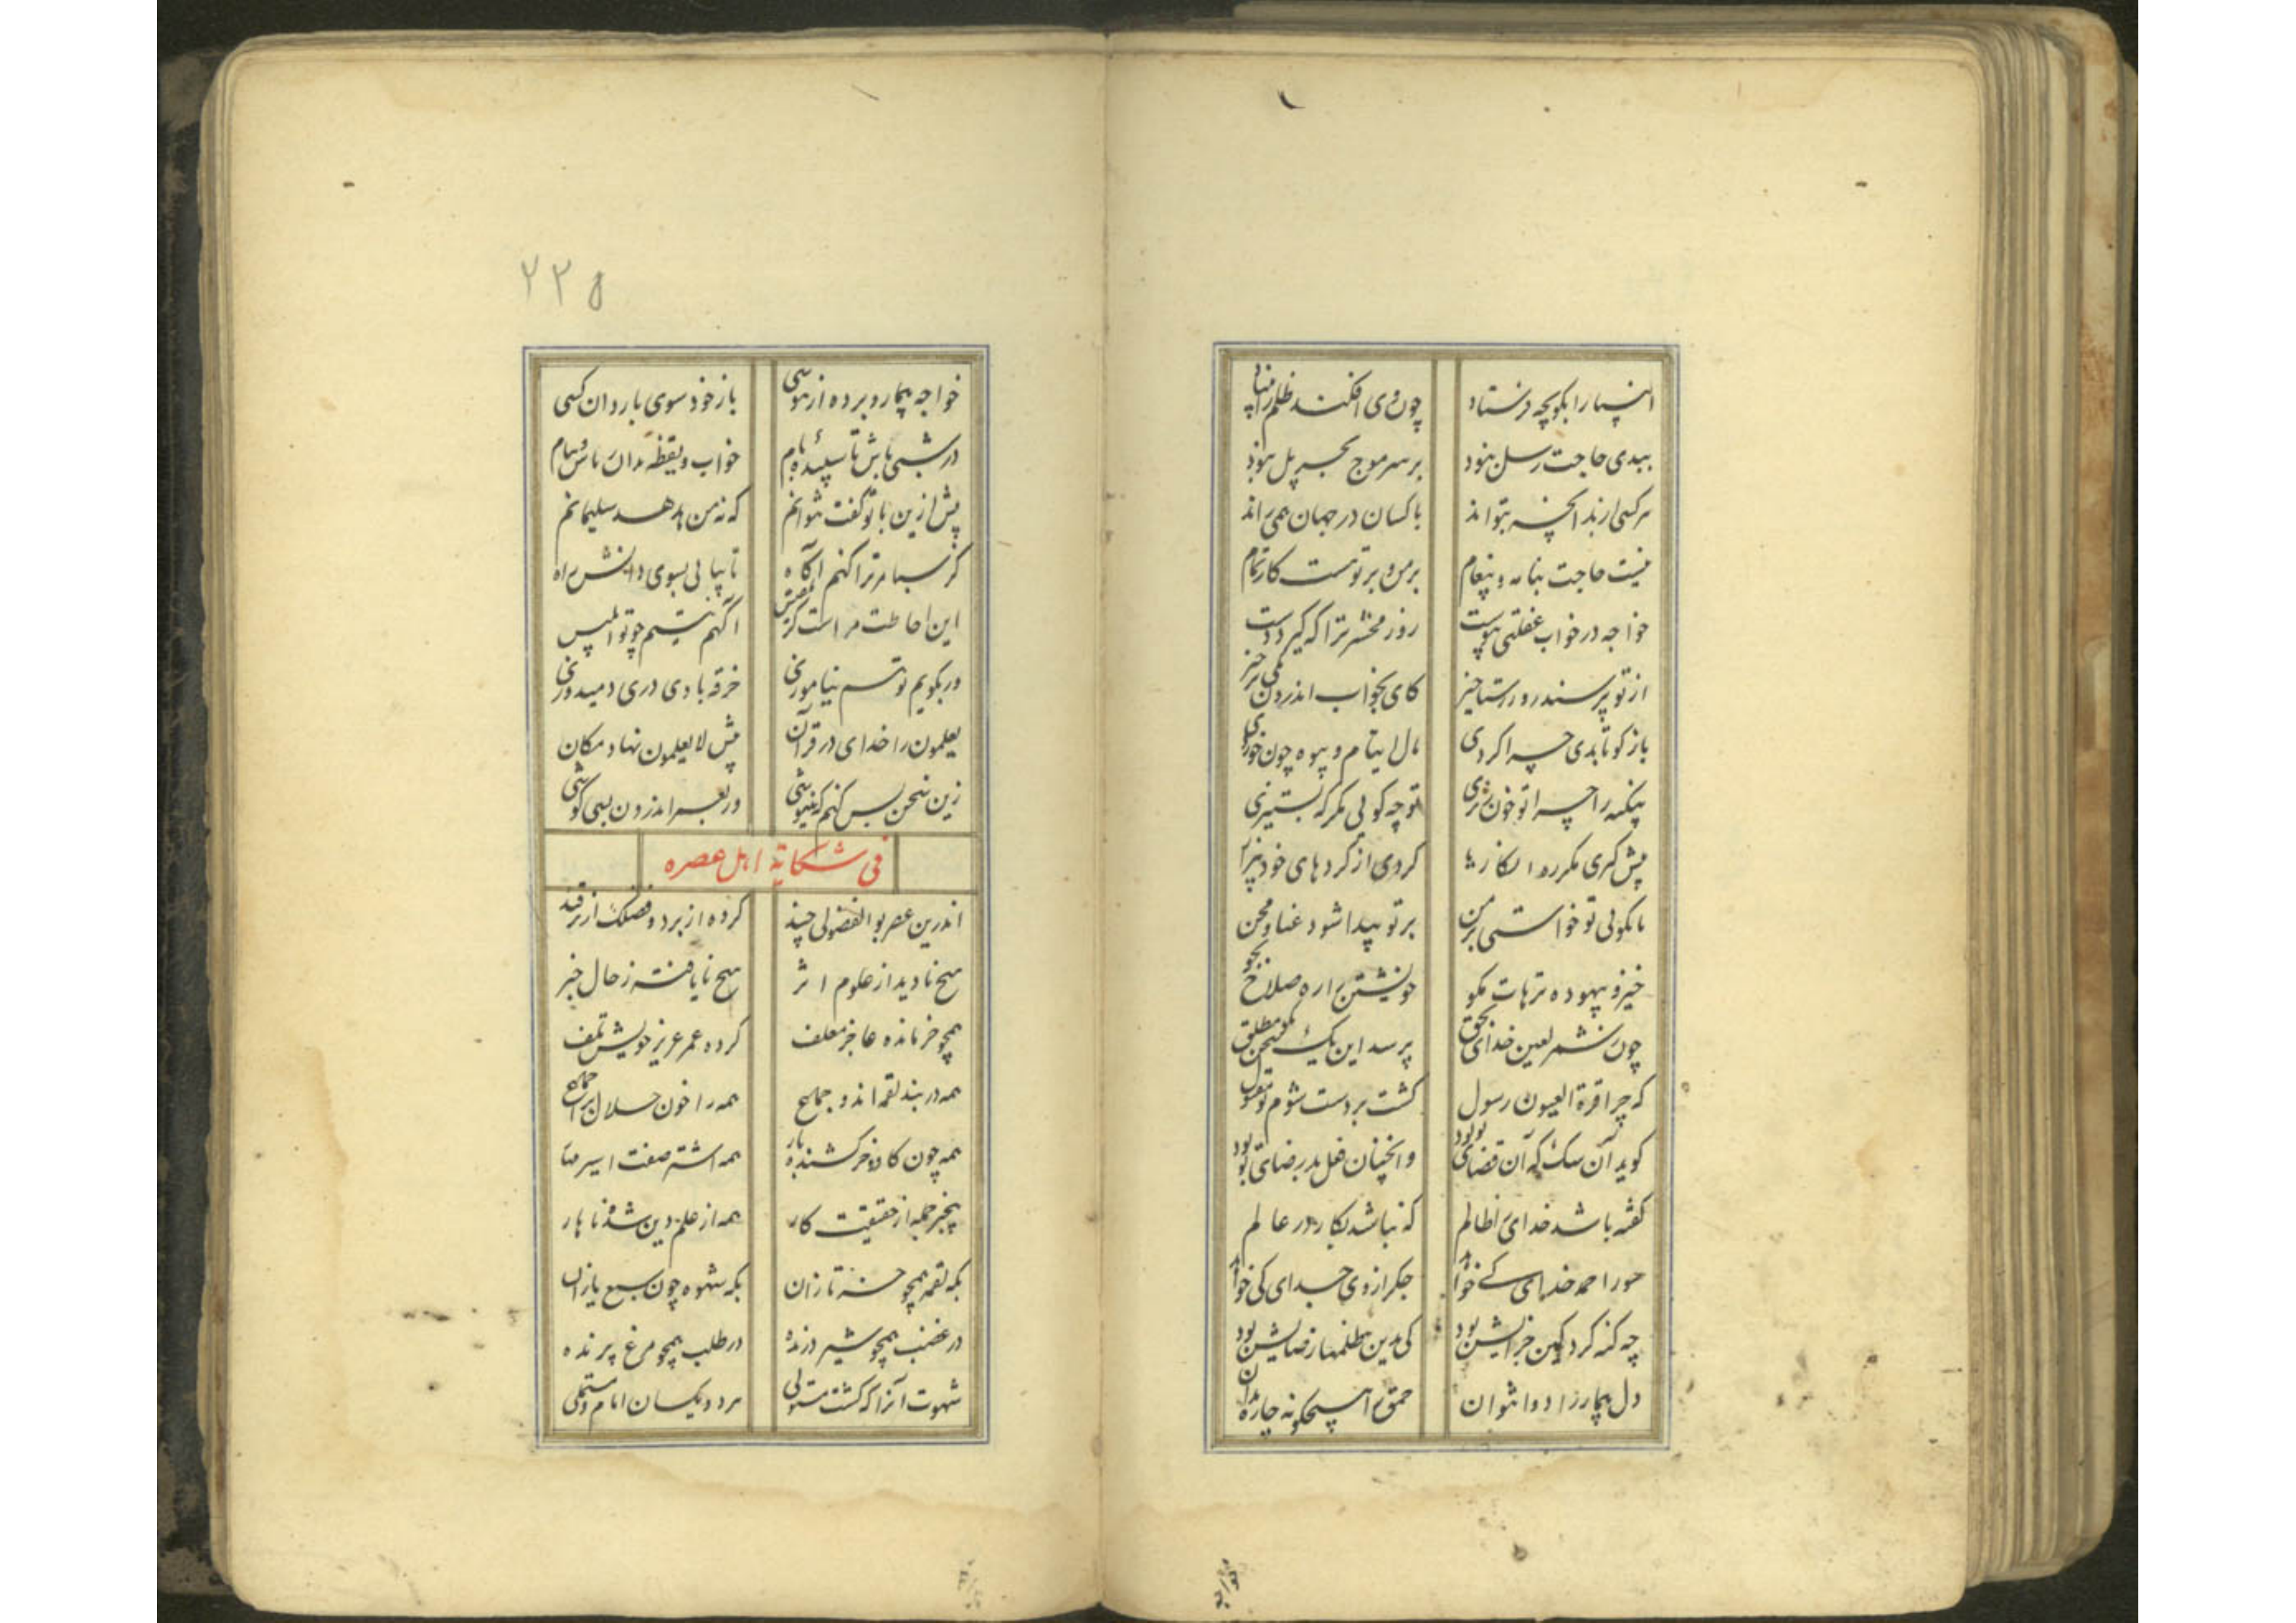 انبیا را بگو چه فرستاد چون وی افکند ظلم را بنیاد
ببدی حاجت رسل نبود بر سر موج بحر پل نبود
هر کسی راند آنچه بتواند با کسان در جهان همی راند
نیست حاجت بنامه و پیغام بر من و بر تو هست کار تمام
خواجه در خواب غفلتی پیوست روز محشر ترا که گیرد دست
از تو پرسند روز رستاخیز کای بخواب اندرون یکی برخیز
باز گو تا بدی چرا کردی مال ایتام و بیوه چون خوردی
بیگنه را چرا تو خون ریزی تو چه گوئی مگر که بستیزی
پیش گیری مگر ره انکار یا کردی از کردهای خود بیزار
یا بگوئی تو خواستی بر من بر تو پیدا شود غنا و محن
خیز و بیهوده ترهات مگو خویشتن را ره صلاح بجو
چون ز شمر لعین خدای بحق پرسد این یک سخن مطلق
که چرا قرة العیون رسول گشت بر دست شوم تو مقتول
گوید آن سگ که آن قضای تو بود وانچنان فعل بد رضای تو بود
گفته باشد خدای را ظالم که نباشد بکار در عالم
خود را همه خدای کی خواهد جگر از وی جدای کی خواهد
چه گنه کرد کین جزایش بود کی بدین ظلمها رضایش بود
دل بیمار را دوا نتوان حمق را هیچگونه چاره مدان
۲۲۵
خواجه بیمار و برده از موسی باز خود سوی بار دان کسی
در شبی باش تا سپیده بام خواب و یقظه بدان باش و بنام
پیش ازین با تو گفت نتوانم که نه من هدهد سلیمانم
کز سبا مر ترا کنم آگاه تا بیابی بسوی دانش راه
این احاطت مر است کز بلقیس آگهم نیستم چو تو ابلیس
ور بگویم تو هم نیاموزی خرقه بادی دری و میدوزی
یعلمون را خدای در قرآن پیش لا یعلمون نهاد مکان
زین سخن بس کنم که ننیوشی ور بعبر اندرون بسی کوشی
فی شکایة اهل عصره
اندرین عصر بوالفضولی چند کرده از برد و فضلک از ترفند
هیچ نادید از علوم اثر هیچ نایافته ز حال خبر
همچو خر مانده عاجز معلف کرده عمر عزیز خویش تلف
همه در بند لقمه اند و جماع همه را خون حلال بر اجماع
همه چون گاو و خر کشنده بار همه اشتر صفت اسیر مهار
بیخبر جمله از حقیقت کار همه از علم دین شده ناهار
بگه لقمه همچو خرس تازان بگه شهوه چون سبع یازان
در غضب همچو شیر درنده در طلب همچو مرغ پرنده
شهوت آنرا که گشت مستولی هر دو یکسان امام و مستملی